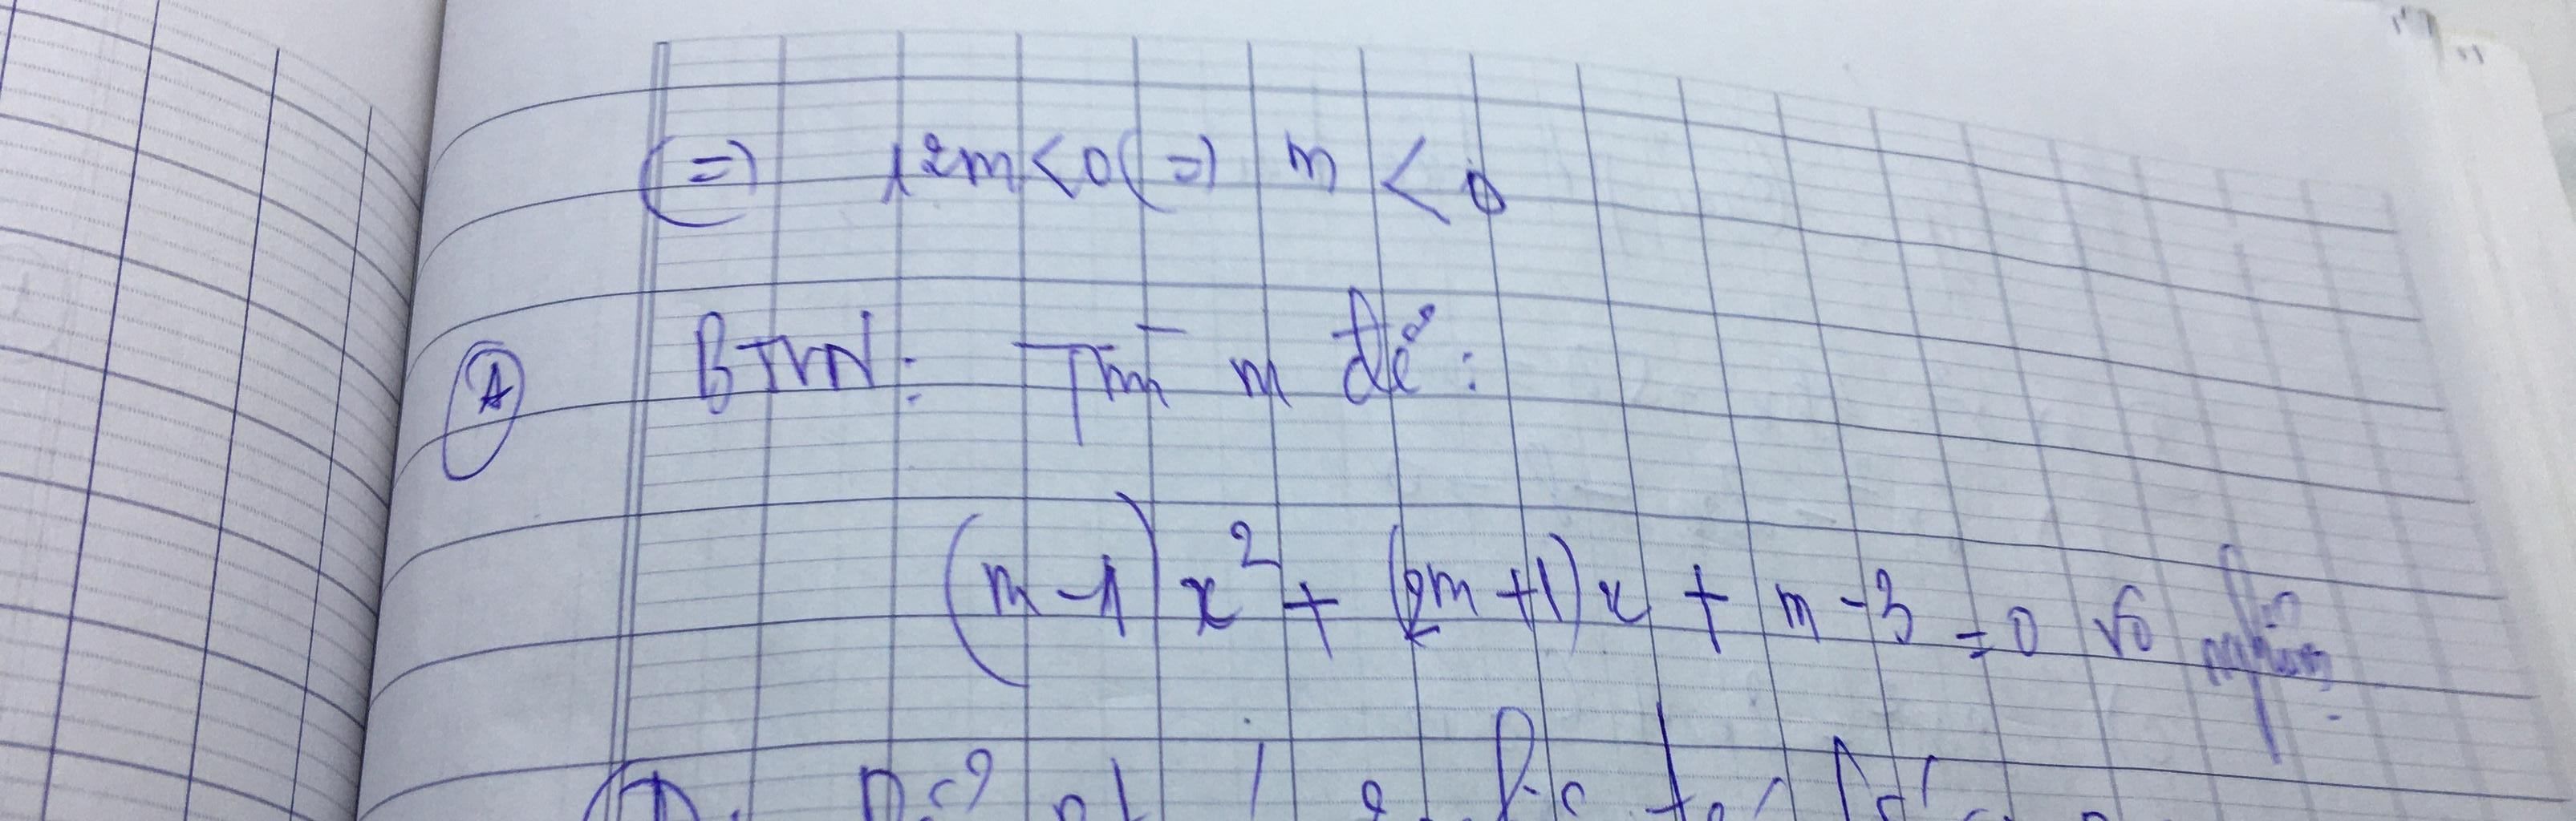 (=) 12m < 0 (=) m < 0
A BTVN: Tìm m để:
(m - 1) x² + (2m + 1) x + m - 3 = 0 vô nghiệm.